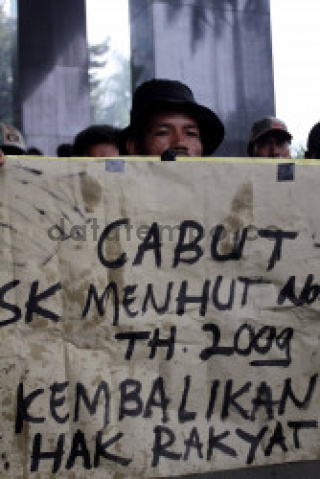 CABUT
SK MENHUT No
TH. 2009
KEMBALIKAN
HAK RAKYAT